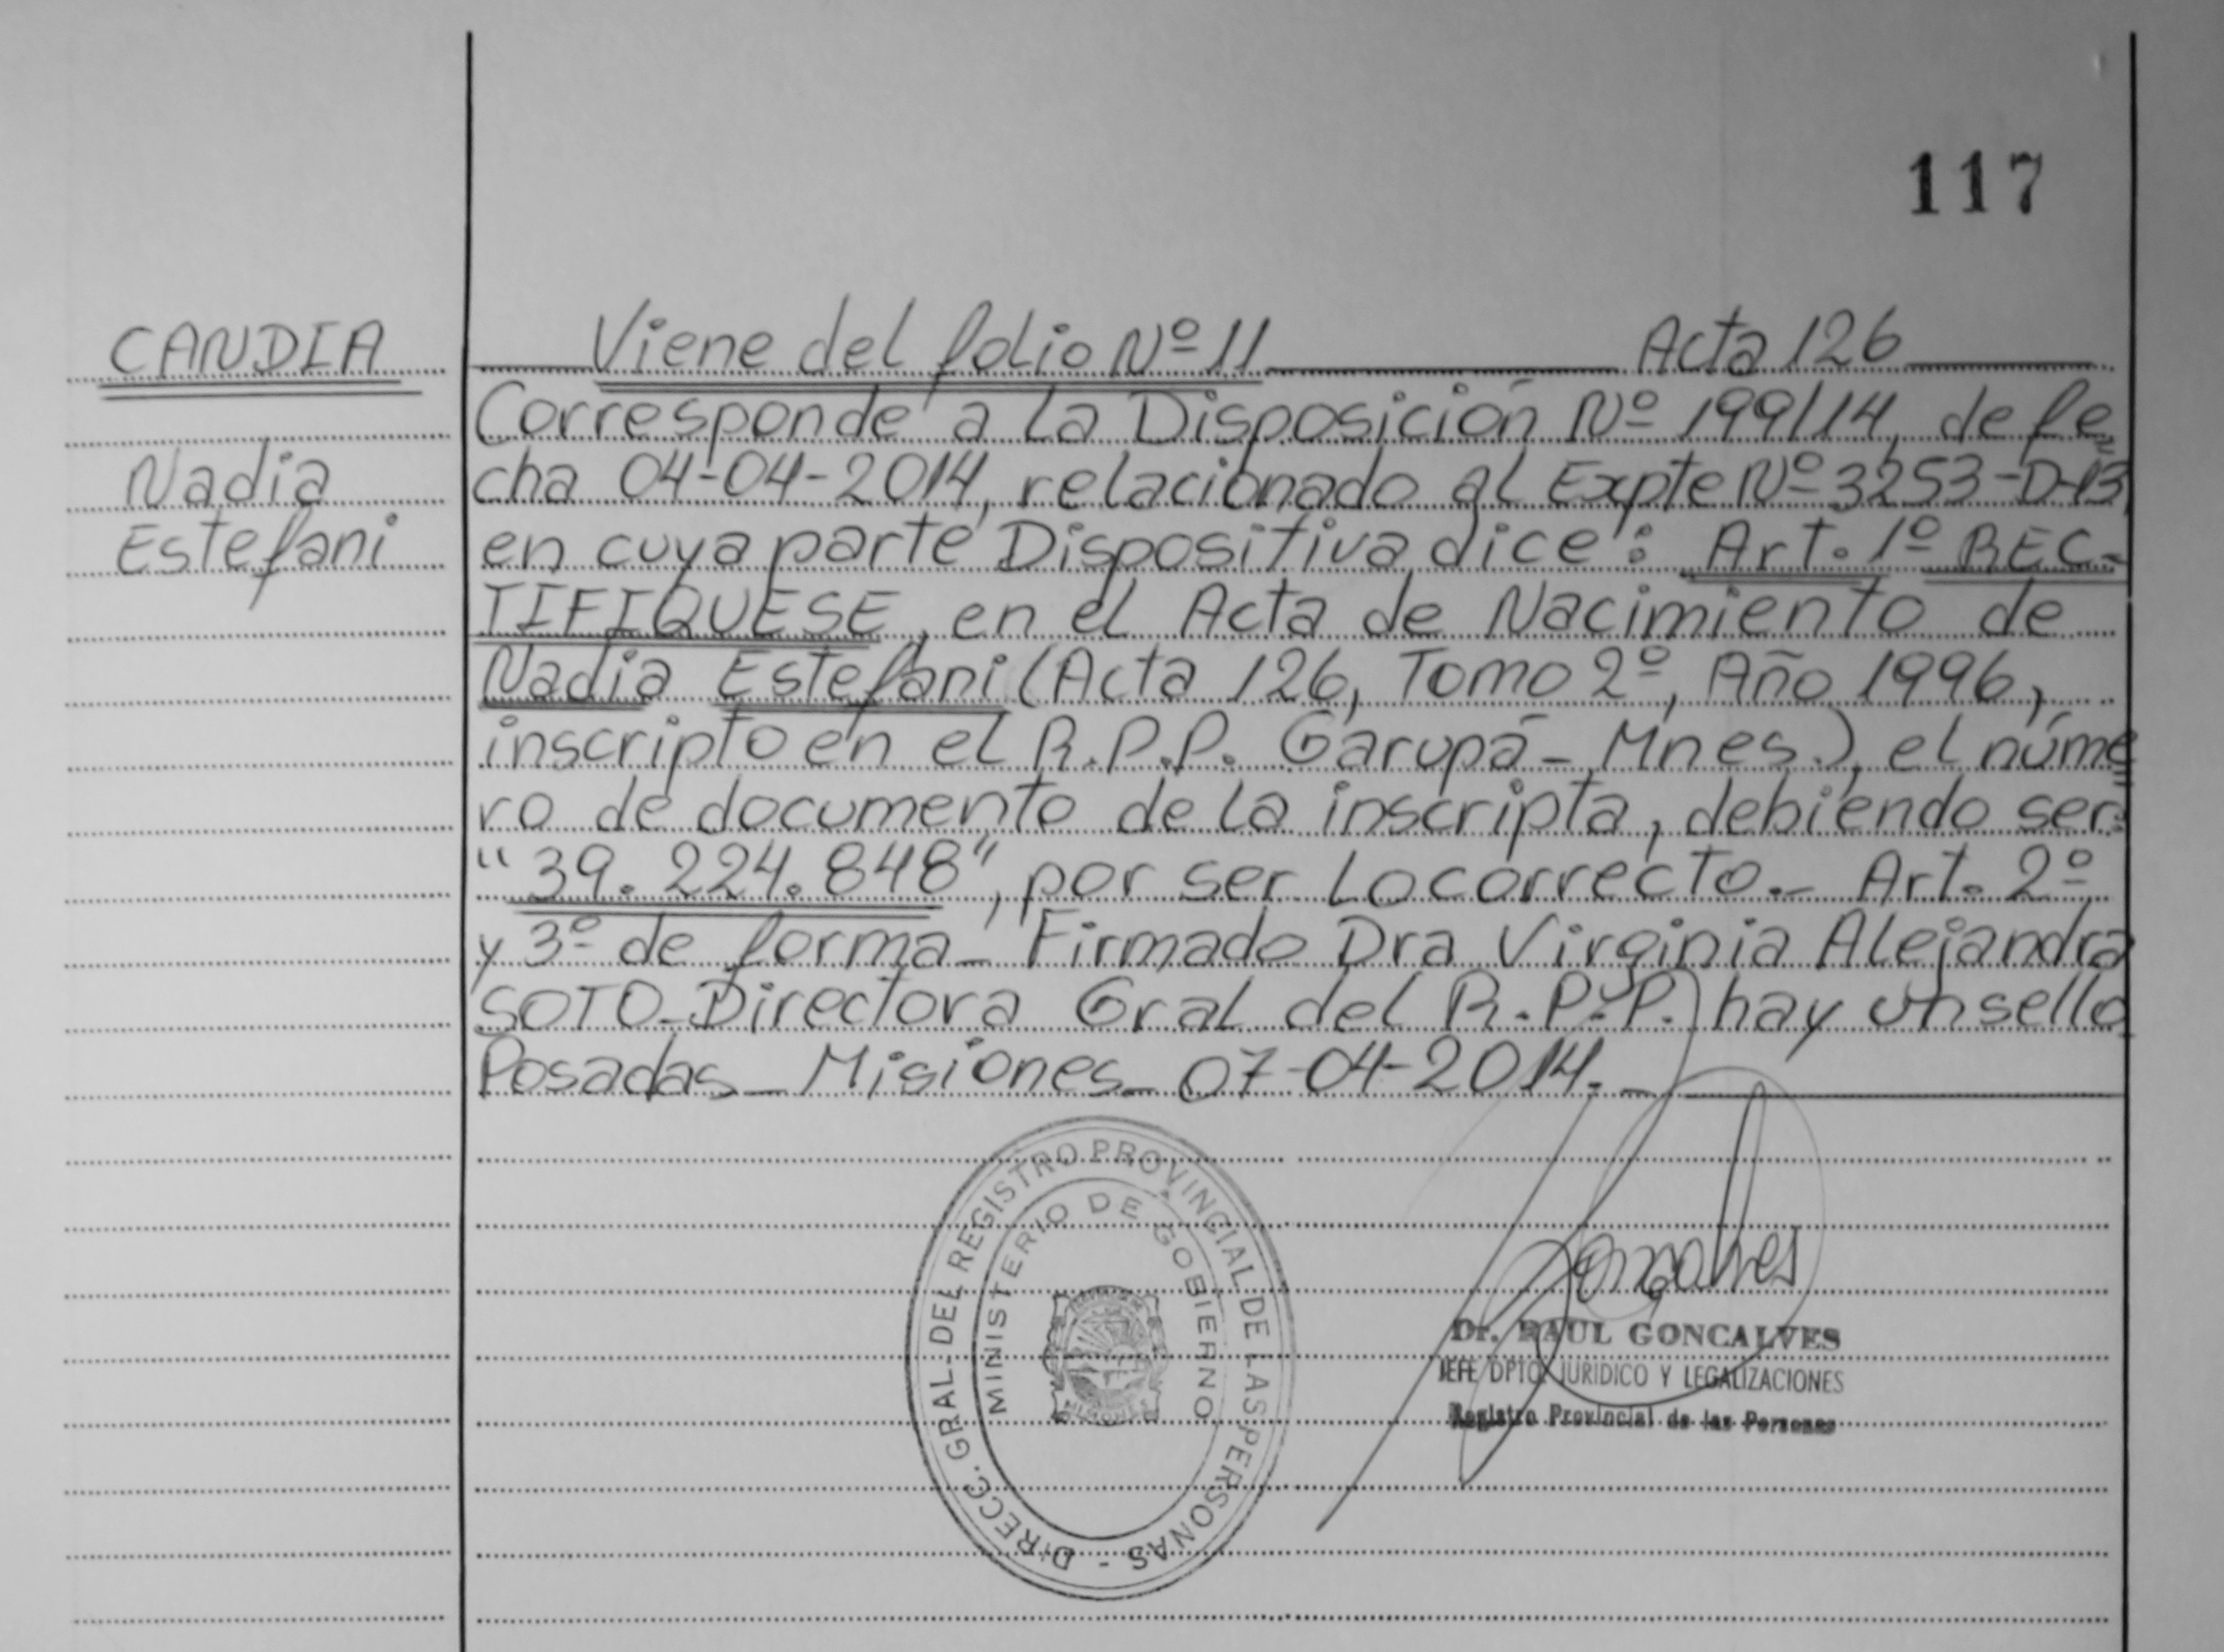 117
CANDIA
Nadia
Estefani
Viene del folio Nº 11 Acta 126
Corresponde a la Disposición Nº 199/14, de fe=
cha 04-04-2014, relacionado al Expte Nº 3253-D-13,
en cuya parte Dispositiva dice: Art. 1º REC-
TIFIQUESE, en el Acta de Nacimiento de
Nadia Estefani (Acta 126, Tomo 2º, Año 1996,
inscripto en el R.P.P. Garupá - Mnes.), el núme=
ro de documento de la inscripta, debiendo ser:
"39.224.848", por ser lo correcto.- Art. 2º
y 3º de forma- Firmado Dra Virginia Alejandra
SOTO-Directora Gral del R.P.P. hay un sello
Posadas- Misiones- 07-04-2014.-
DIRECC. GRAL. DEL REGISTRO PROVINCIAL DE LAS PERSONAS -
MINISTERIO DE GOBIERNO
Goncalves
Dr. RAUL GONCALVES
JEFE DPTO. JURIDICO Y LEGALIZACIONES
Registro Provincial de las Personas